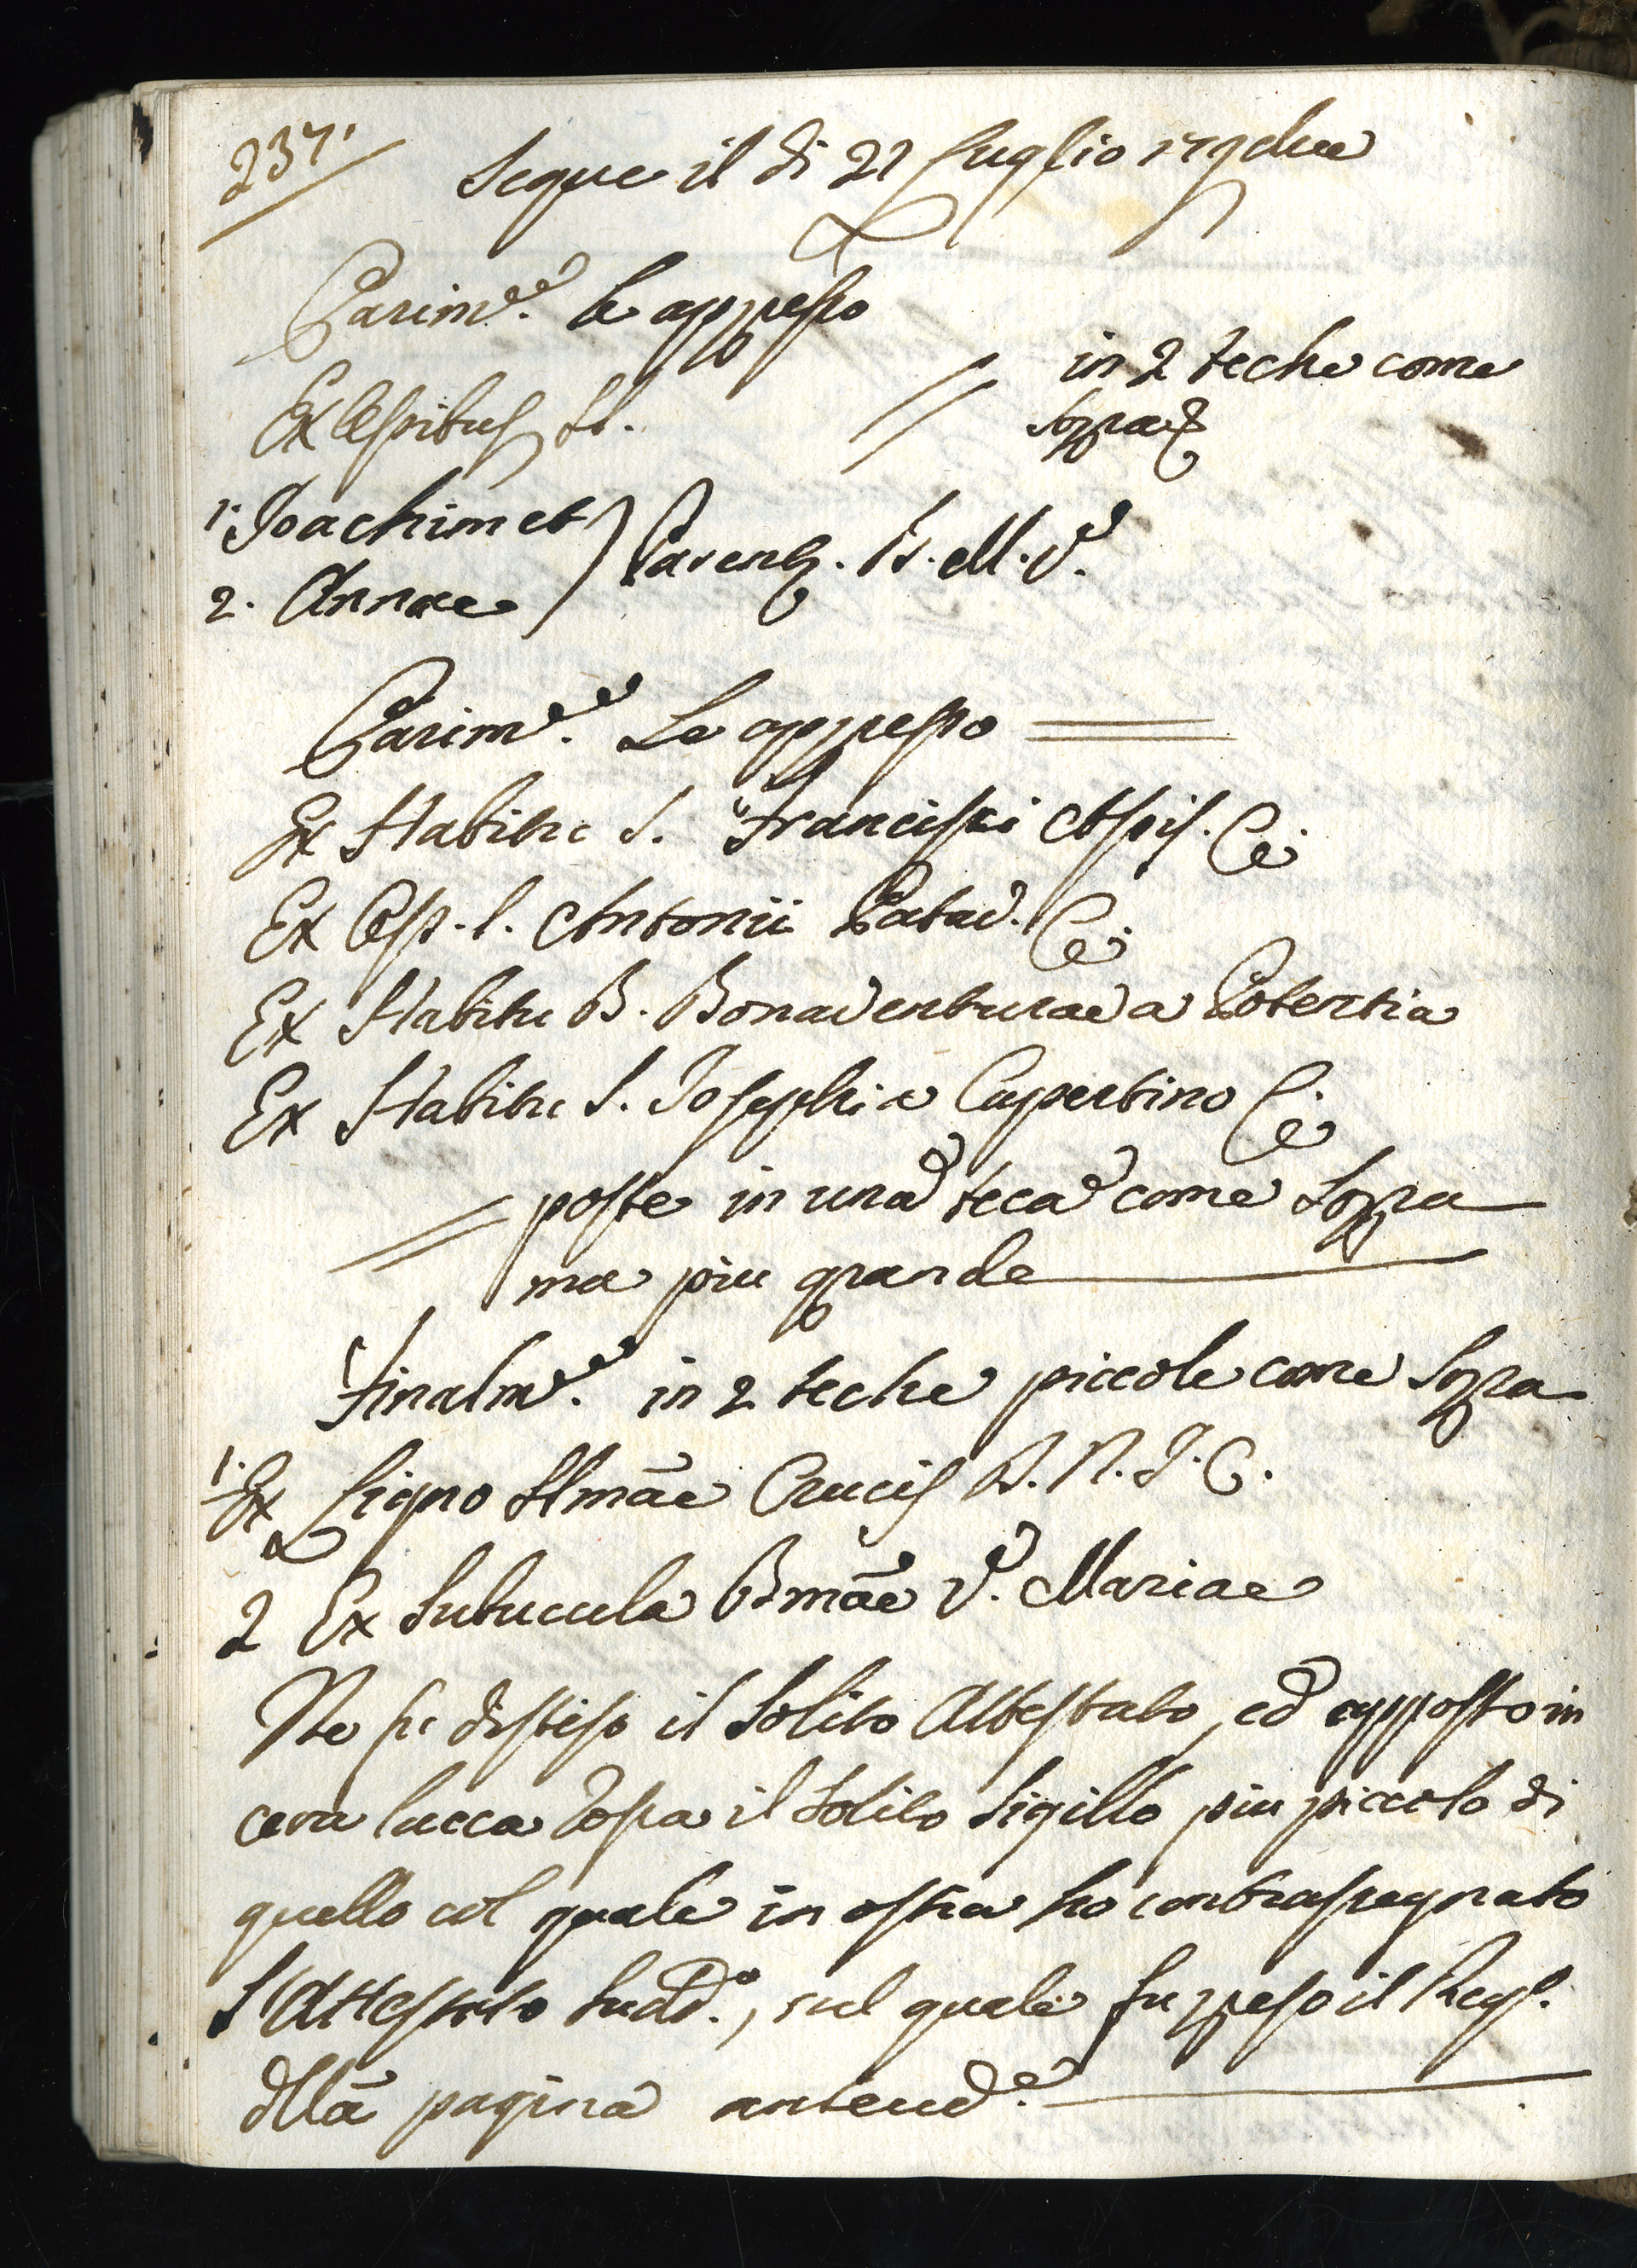 237.
Segue il di 21 Luglio
Parim.e le appresso
in 2 teche come
sopra
Ex Cespitus SS.
1. Joachim et
2. Annae
Parent. B. M. V.
Parim.e Le appresso
Ex Habitu S. Francisci Assis. C.
Ex Cesp. S. Antonii Patav. C.
Ex Habitu B. Bonaventurae a Potentia
Ex Habitu S. Josephi a Cupertino C.
poste in una teca come sopra
ma piu grande
Finalm.e in 2 teche piccole come sopra
1. Ex Ligno SSmae Crucis D. N. J. C.
2 Ex Subucula Bmae V. Mariae
Ne fu disteso il solito Attestato, ed apposto in
cera lacca rossa il solito Sigillo piu piccolo di
quello col quale in ostia ho contrasegnato
l'Attestato sudd.o, sul quale fu preso il Reg.
dlla pagina anteced.e